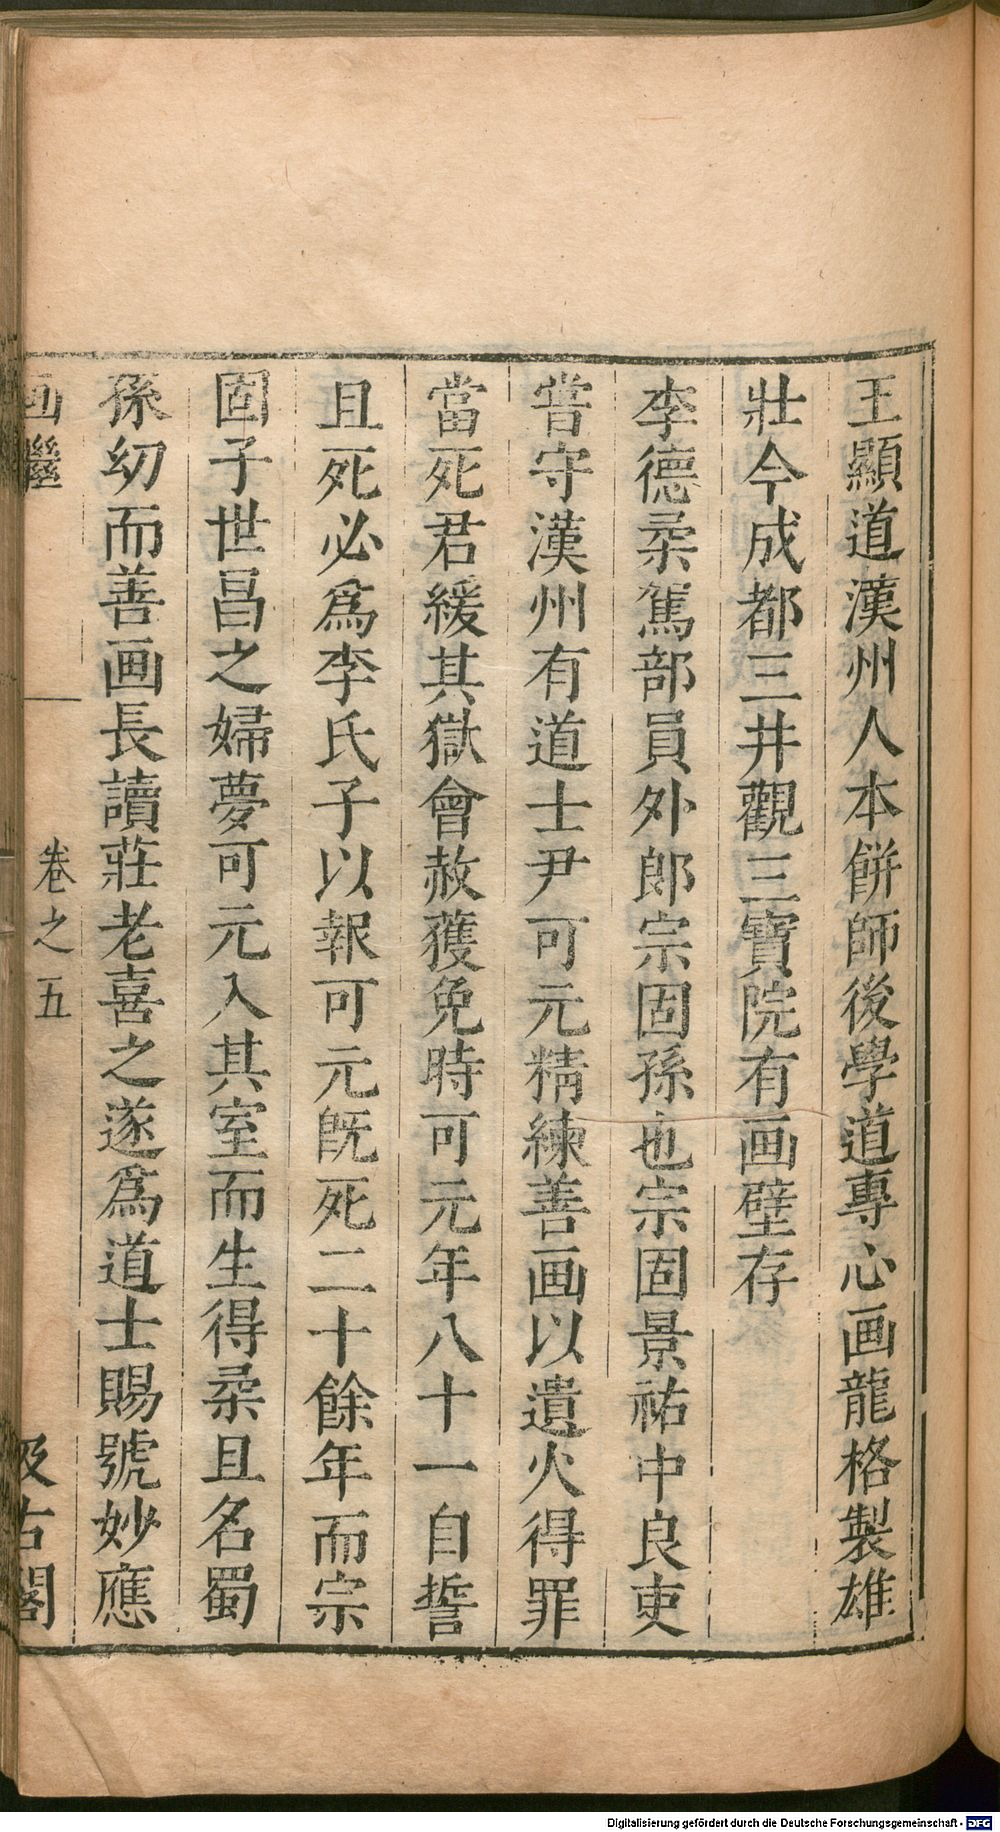 王顯道漢州人本餅師後學道專心画龍格製雄
壯今成都三井觀三寶院有画壁存
李德柔駕部員外郎宗固孫也宗固景祐中良吏
甞守漢州有道士尹可元精練善画以遺火得罪
當死君緩其獄會赦獲免時可元年八十一自誓
且死必爲李氏子以報可元旣死二十餘年而宗
固子世昌之婦夢可元入其室而生得柔且名蜀
孫幼而善画長讀莊老喜之遂爲道士賜號妙應
画繼
卷之五
汲古閣
Digitalisierung gefördert durch die Deutsche Forschungsgemeinschaft - DFG